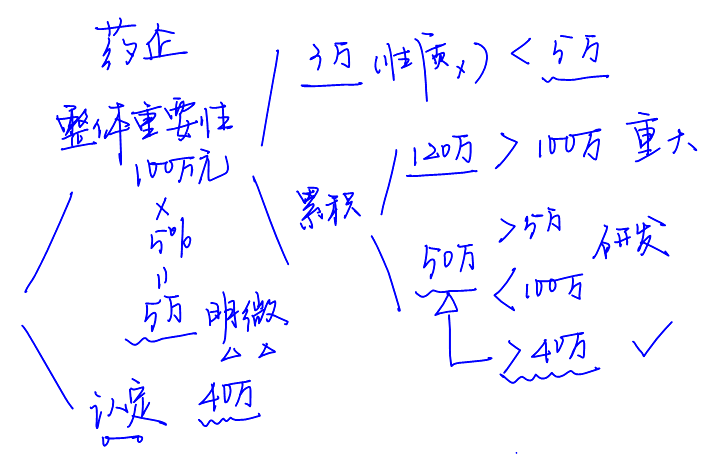 药企
整体重要性
100万元
×
5%
=
5万 明微
认定 40万
3万 (性质×) < 5万
累积
120万 > 100万 重大
50万 > 5万 < 100万 研发
> 40万 ✓